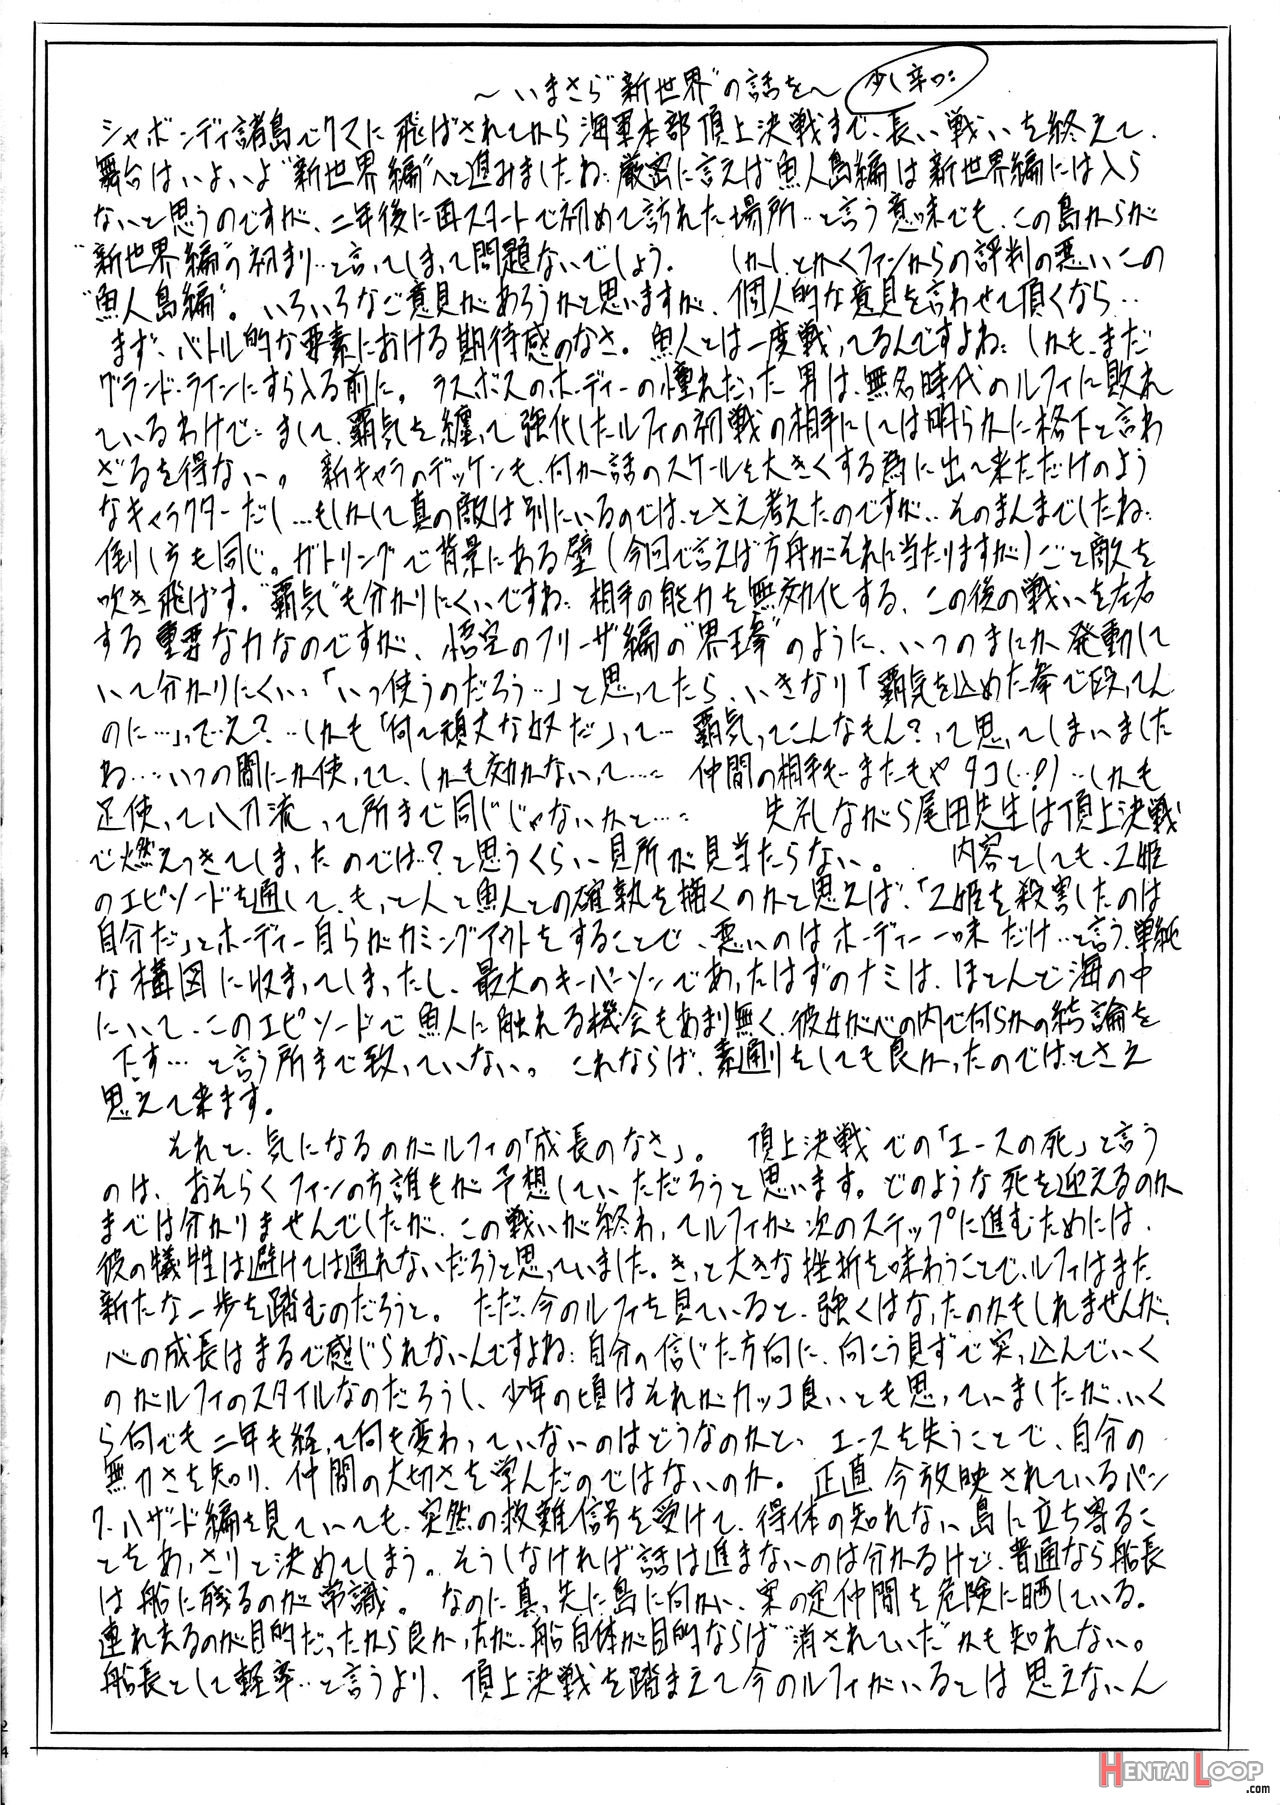 ～いまさら“新世界”の話を～ 少し辛口:
シャボンディ諸島でクマに飛ばされてから海軍本部頂上決戦まで、長い戦いを終えて、
舞台はいよいよ“新世界編”へと進みましたね: 厳密に言えば魚人島編は新世界編には入ら
ないと思うのですが、二年後に再スタートで初めて訪れた場所…と言う意味でも、この島からが
“新世界編”の初まり…と言ってしまって問題ないでしょう。 しかし、とかくファンからの評判の悪いこの
“魚人島編”。いろいろなご意見があろうかと思いますが、個人的な意見を言わせて頂くなら…
まず、バトル的な要素における期待感のなさ。魚人とは一度戦ってるんですよね: しかも、まだ
グランド・ラインにすら入る前に。 ラスボスのホーディーの憧れだった男は、無名時代のルフィに敗れ
ているわけで: まして、覇気を纏って強化したルフィの初戦の相手にしては明らかに格下と言わ
ざるを得ない。 新キャラのデッケンも、何か話のスケールを大きくする為に出て来ただけのよう
なキャラクターだし…もしかして真の敵は別にいるのでは、とさえ考えたのですが、そのまんまでしたね:
倒し方も同じ。ガトリングで背景にある壁(今回で言えば方舟がそれに当たりますが)ごと敵を
吹き飛ばす。“覇気”も分かりにくいですね: 相手の能力を無効化する、この後の戦いを左右
する重要な力なのですが、悟空のフリーザ編の“界王拳”のように、いつのまにか発動して
いて分かりにくい。「いつ使うのだろう…」と思ってたら、いきなり「覇気を込めた拳で殴ってん
のに…」って…え?…しかも「何て頑丈な奴だ」って… 覇気ってこんなもん?って思ってしまいました
ね…いつの間にか使ってて、しかも効かないって…: 仲間の相手も…またもやタコ(…!)…しかも
足使って八刀流って所まで同じじゃないかと…: 失礼ながら尾田先生は頂上決戦
で燃えつきてしまったのでは?と思うくらい見所が見当たらない。 内容としても、乙姫
のエピソードを通して、もっと人と魚人との確執を描くのかと思えば、「乙姫を殺害したのは
自分だ」とホーディー自らがカミングアウトをすることで、悪いのはホーディー一味だけ…と言う、単純
な構図に収まってしまったし、最大のキーパーソンであったはずのナミは、ほとんど海の中
にいて、このエピソードで魚人に触れる機会もあまり無く、彼女が心の内で何らかの結論を
下す…と言う所まで致っていない。 これならば、素通りをしても良かったのでは、とさえ
思えて来ます。
それと、気になるのがルフィの「成長のなさ」。 頂上決戦での「エースの死」と言う
のは、おそらくファンの方誰もが予想していただろうと思います。どのような死を迎えるのか
までは分かりませんでしたが、この戦いが終わってルフィが次のステップに進むためには、
彼の犠牲は避けては通れないだろうと思っていました。きっと大きな挫折を味わうことで、ルフィはまた
新たな一歩を踏むのだろうと。 ただ、今のルフィを見ていると、強くはなったのかもしれませんが、
心の成長はまるで感じられないんですよね: 自分の信じた方向に、向こう見ずで突っ込んでいく
のがルフィのスタイルなのだろうし、少年の頃はそれがカッコ良いとも思っていましたが、いく
ら何でも二年も経って何も変わっていないのはどうなのかと、 エースを失うことで、自分の
無力さを知り、仲間の大切さを学んだのではないのか。 正直、今放映されているパン
ク・ハザード編を見ていても、突然の救難信号を受けて、得体の知れない島に立ち寄るこ
とをあっさりと決めてしまう。 そうしなければ話は進まないのは分かるけど、普通なら船長
は船に残るのが常識。 なのに真っ先に島に向かい、案の定仲間を危険に晒している。
連れ去るのが目的だったから良かったが、船自体が目的ならば“消されていた”かも知れない。
船長として軽率…と言うより、頂上決戦を踏まえて今のルフィがいるとは思えないん
24
HENTAI LOOP
.com